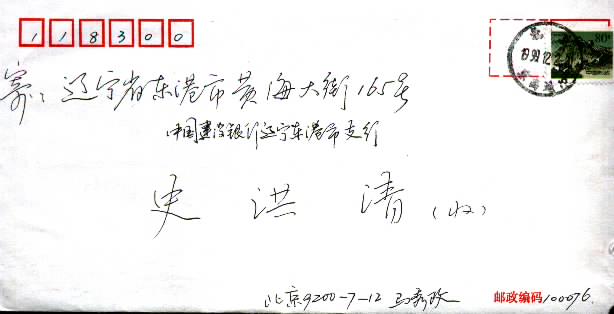 118300
80分
1999.12
寄：辽宁省东港市黄海大街165号
中国建设银行辽宁东港市支行
史洪清（收）
北京9200-7-12
邮政编码100076